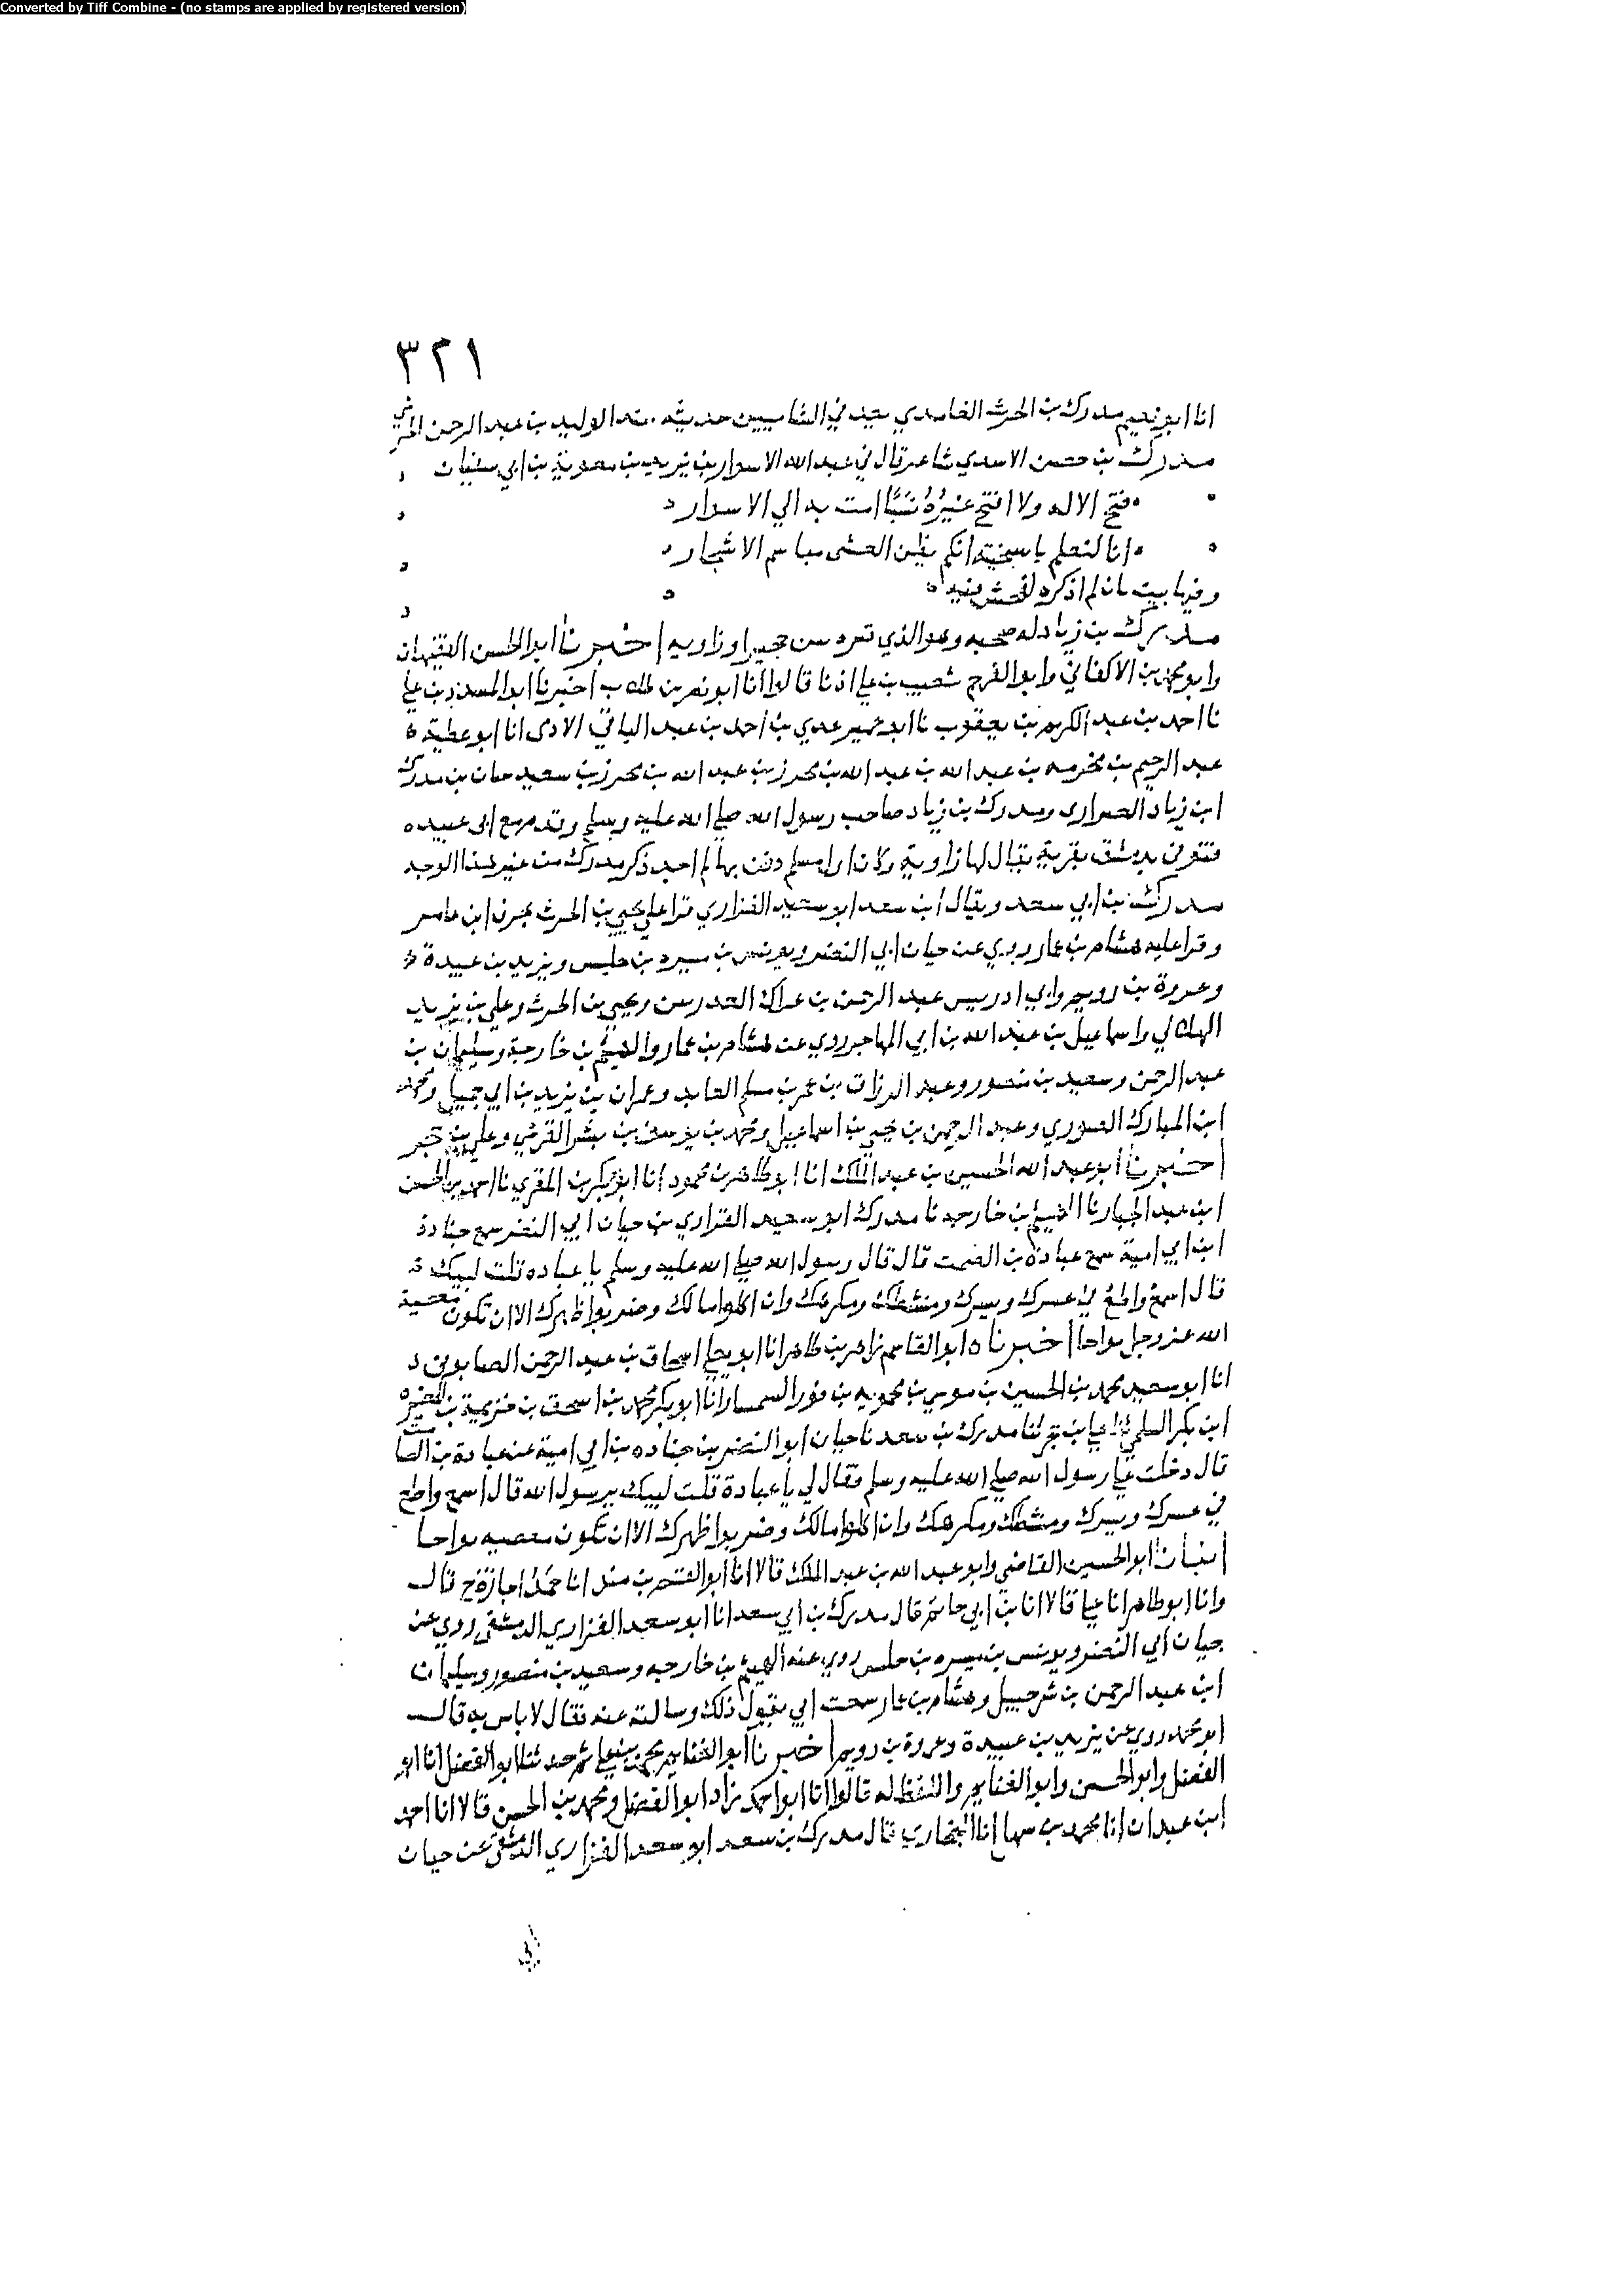 Converted by Tiff Combine - (no stamps are applied by registered version)
٣٢١
انا ابو نعيم مدرك بن الحرث الغامدي يعد في الشاميين حديثه عند الوليد بن عبد الرحمن الجرشي
مدرك بن حصن الاسدي شاعر قال في عبد الله الاسوار بن يزيد بن معوية بن ابي سفيان
قبح الاله ولا اقبح غيره نسبا امت به الي الاسوار
انا لنعلم يا سخينة انكم بطن العشى مباسم الاشجار
وفيها بيت ثان لم اذكره لفحش فيه
مدرك بن زياد له صحبه وهو الذي قبره من حجيرا وزاويه اخبرنا ابوا الحسن الفقيهان
وابو محمد بن الاكفاني وابو الفرج شعيب بن علي اذنا قالوا انا ابو نصر بن طلاب اخبرنا ابو بن علي
نا احمد بن عبد الكريم بن يعقوب نا ابو عمير عدي بن احمد بن عبد الباقي الادمى انا ابو عطية
عبد الرحيم بن محرز بن عبد الله بن محرز بن سعيد حبان بن مدرك
ابن زياد الفزاري ومدرك بن زياد صاحب رسول الله صلي الله عليه وسلم وقدم مع ابي عبيده
فتوفي بدمشق بقرية يقال لها زاوية وكان اول مسلم دفن بها لم اجد ذكر مدرك من غير هذا الوجه
مدرك بن ابي سعد ويقال ابن سعد ابو سعيد الفزاري قرا علي يحيي بن الحرث بحرف ابن عامر
وقرا عليه هشام بن عمار روي عن حيان ابي النضر ويونس بن ميسره بن حلبس ويزيد بن عبيدة
وعروة بن رويم وابي ادريس عبد الرحمن بن عراك العذريين ويحيي بن الحرث وعلي بن يزيد
الهلالي واسماعيل بن عبد الله بن ابي المهاجر روي عنه هشام بن عمار والهيثم بن خارجة وسليمان بن
عبد الرحمن وسعيد بن منصور وعبد الرزاق بن عمر بن مسلم العابد وعمران بن يزيد بن ابي جميل ومحمد
ابن المبارك الصوري وعبد الرحمن بن يحيي بن اسماعيل ومحمد بن يوسف بن بشر القرشي وعلي بن حجر
اخبرنا ابو عبد الله الحسين بن عبد الملك انا ابو طاهر بن محمود انا ابو بكر بن المقري نا احمد بن الحسن
ابن عبد الجبار نا الهيثم بن خارجه نا مدرك ابو سعيد الفزاري بن حيان ابي النضر سمع جنادة
ابن ابي امية سمع عبادة بن الصمت قال قال رسول الله صلي الله عليه وسلم يا عباده قلت لبيك
قال اسمع واطع في عسرك ويسرك ومنشطك ومكرهك وان اكلوا مالك وضربوا ظهرك الا ان تكون معصية
الله عز وجل بواحا اخبرنا ابو القاسم زاهر بن طاهر انا ابو يعلي اسحاق بن عبد الرحمن الصابوني
انا ابو سعيد محمد بن الحسين بن موسي بن محمويه بن فور السمسار انا ابو بكر محمد بن اسحق بن خزيمة بن المغيره
ابن بكر السلمي ثنا علي بن حجر ثنا مدرك بن سعد نا حيان ابو النضر بن جناده بن ابي امية عن عبادة بن الصامت
قال دخلت علي رسول الله صلي الله عليه وسلم فقال لي يا عبادة قلت لبيك يرسول الله قال اسمع واطع
في عسرك ويسرك ومنشطك ومكرهك وان اكلوا مالك وضربوا ظهرك الا ان تكون معصيه بواحا
انبانا ابو الحسين القاضي وابو عبد الله بن عبد الملك قالا انا ابو القسم بن منده انا حمد اجازة ح قال
وانا ابو طاهر انا علي قالا انا بن ابي حاتم قال مدرك بن ابي سعد انا ابو سعد الفزاري الدمشقي روي عن
حيان ابي النضر ويونس بن ميسره بن حلبس روي عنه الهيثم بن خارجه وسعيد بن منصور وسليمان
ابن عبد الرحمن بن شرحبيل وهشام بن عمار سمعت ابي يقول ذلك وسالته عنه فقال لا باس به قال
ابو محمد روي عن يزيد بن عبيدة وعروة بن رويم اخبرنا ابو الغنايم محمد بن علي ثم حدثنا ابو الفضل انا ابو
الفضل وابو الحسين وابو الغنايم واللفظ له قالوا انا ابو احمد زاد ابو الفضل ومحمد بن الحسن قالا انا احمد
ابن عبدان انا محمد بن سهل انا البخاري قال مدرك بن سعد ابو سعد الفزاري الدمشقي عن حيان
ابي